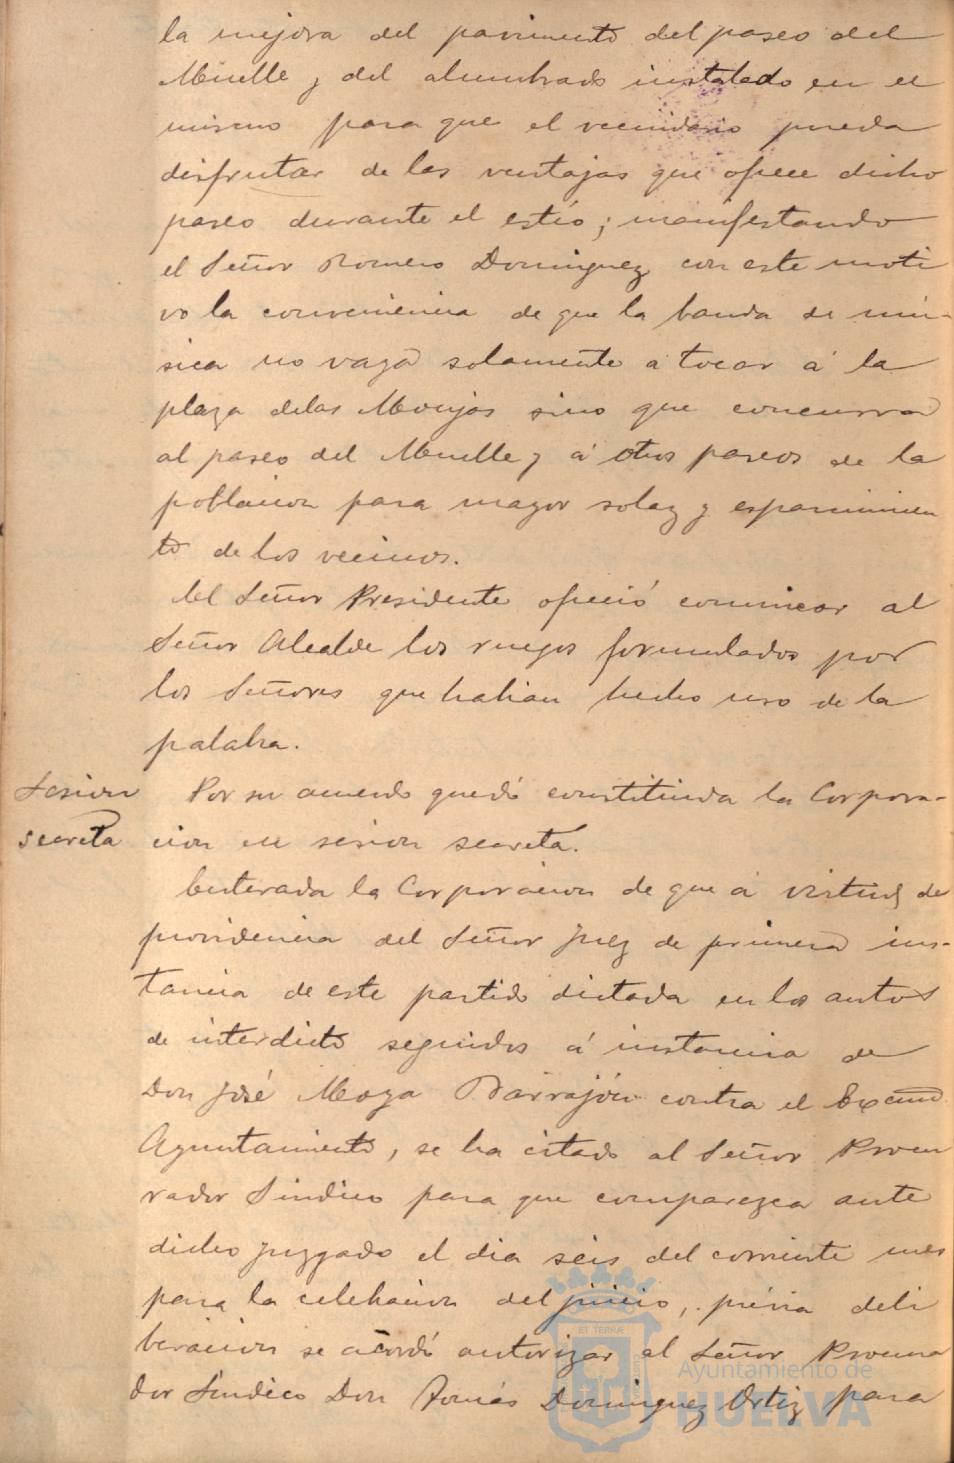 la mejora del pavimento del paseo del
Muelle y del alumbrado instalado en el
mismo para que el vecindario pueda
disfrutar de las ventajas que ofrece dicho
paseo durante el estío; manifestando
el Señor Romero Dominguez con este moti
vo la conveniencia de que la banda de mú-
sica no vaya solamente a tocar á la
plaza de las Monjas sino que concurra
al paseo del Muelle y á otros paseos de la
poblacion para mayor solaz y esparcimien
to de los vecinos.
El Señor Presidente ofreció comunicar al
Señor Alcalde los ruegos formulados por
los Señores que habian hecho uso de la
palabra.
Sesion
secreta
Por su acuerdo quedó constituida la Corpora-
cion en sesion secreta.
Enterada la Corporacion de que á virtud de
providencia del Señor Juez de primera ins-
tancia de este partido dictada en los autos
de interdicto seguidos á instancia de
Don José Moya Barrajón contra el Excmo
Ayuntamiento, se ha citado al Señor Procu
rador Sindico para que comparezca ante
dicho juzgado el dia seis del corriente mes
para la celebracion del juicio, previa deli
beracion se acordó autorizar al Señor Procura
dor Sindico Don Tomás Dominguez Ortiz para
ET TERRÆ
Ayuntamiento de
HUELVA